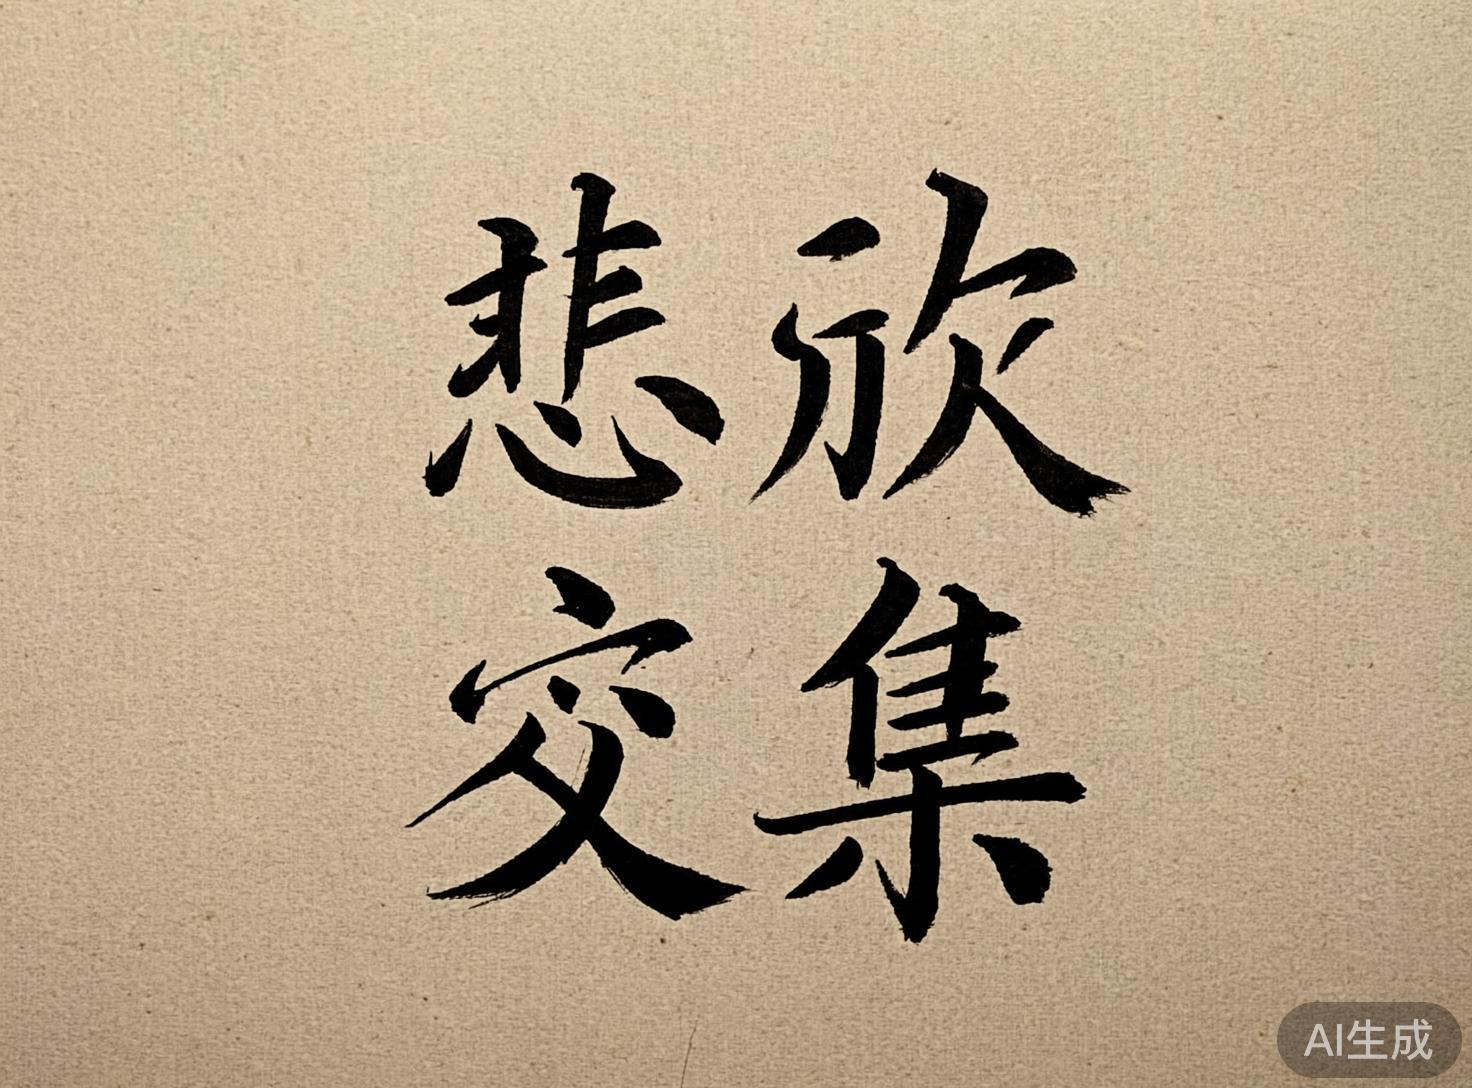 悲欣
交集
AI生成